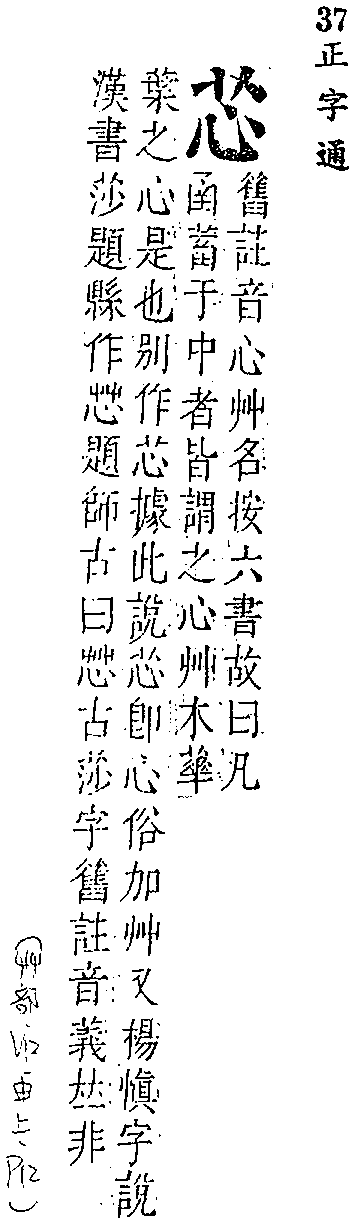 37正字通
芯
舊註音心艸名按六書故曰凡
函蓄于中者皆謂之心艸木華
葉之心是也別作芯據此說芯即心俗加艸又楊慎字說
漢書莎題縣作芯題師古曰芯古莎字舊註音義𠀤非
(艸部 上、P12)